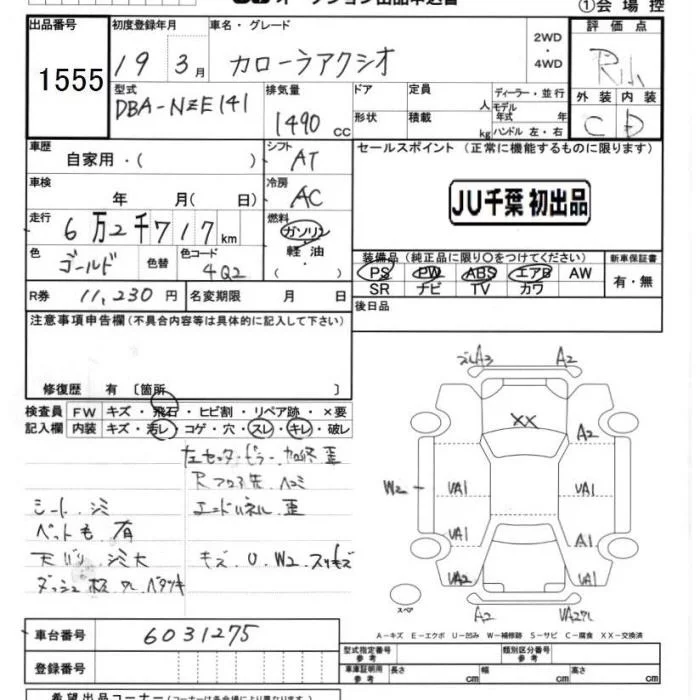 オークション出品申込書
①会場控
出品番号 初度登録年月 車名・グレード 2WD ・ 4WD 評価点
1555 19年3月 カローラアクシオ R
型式 排気量 ドア 定員 人 ディーラー・並行 外装 内装
DBA-NZE141 1490cc モデル年式 年 C D
形状 積載 kg ハンドル 左・右
車歴 シフト セールスポイント (正常に機能するものに限ります)
自家用・( ) AT
車検 冷房
年 月(日) AC JU千葉 初出品
走行 燃料
6万2千717km ガソリン
色 色替 色コード 軽油 装備品 (純正品に限り○をつけてください) 新車保証書
ゴールド 4Q2 ・( PS PW ABS エアB AW 有・無
SR ナビ TV カワ
R券 11,230円 名変期限 月 日 後日品
注意事項申告欄 (不具合内容等は具体的に記入して下さい)
修復歴 有 〔箇所 〕
検査員 FW キズ・飛石・ヒビ割・リペア跡・×要
記入欄 内装 キズ・汚レ・コゲ・穴・スレ・キレ・破レ
左センターピラー 加修 歪
Rフロア先 ヘコミ
シート シミ エンドパネル 歪
ペット毛 有
天バリ シミ大 キズ U W2 スリキズ
ダッシュ
A3 A2
XX
A2
W2 UA1 UA1
UA1 A1
UA2 UA1
スペア
A2 UA2
A-キズ E-エクボ U-凹み W-補修跡 S-サビ C-腐食 XX-交換済
車台番号 6031275
登録番号
型式指定番号 参考 類別区分番号 参考
車庫証明用 参考 長さ cm 幅 cm 高さ cm
希望出品コーナー (コーナーは各会場により異なります)